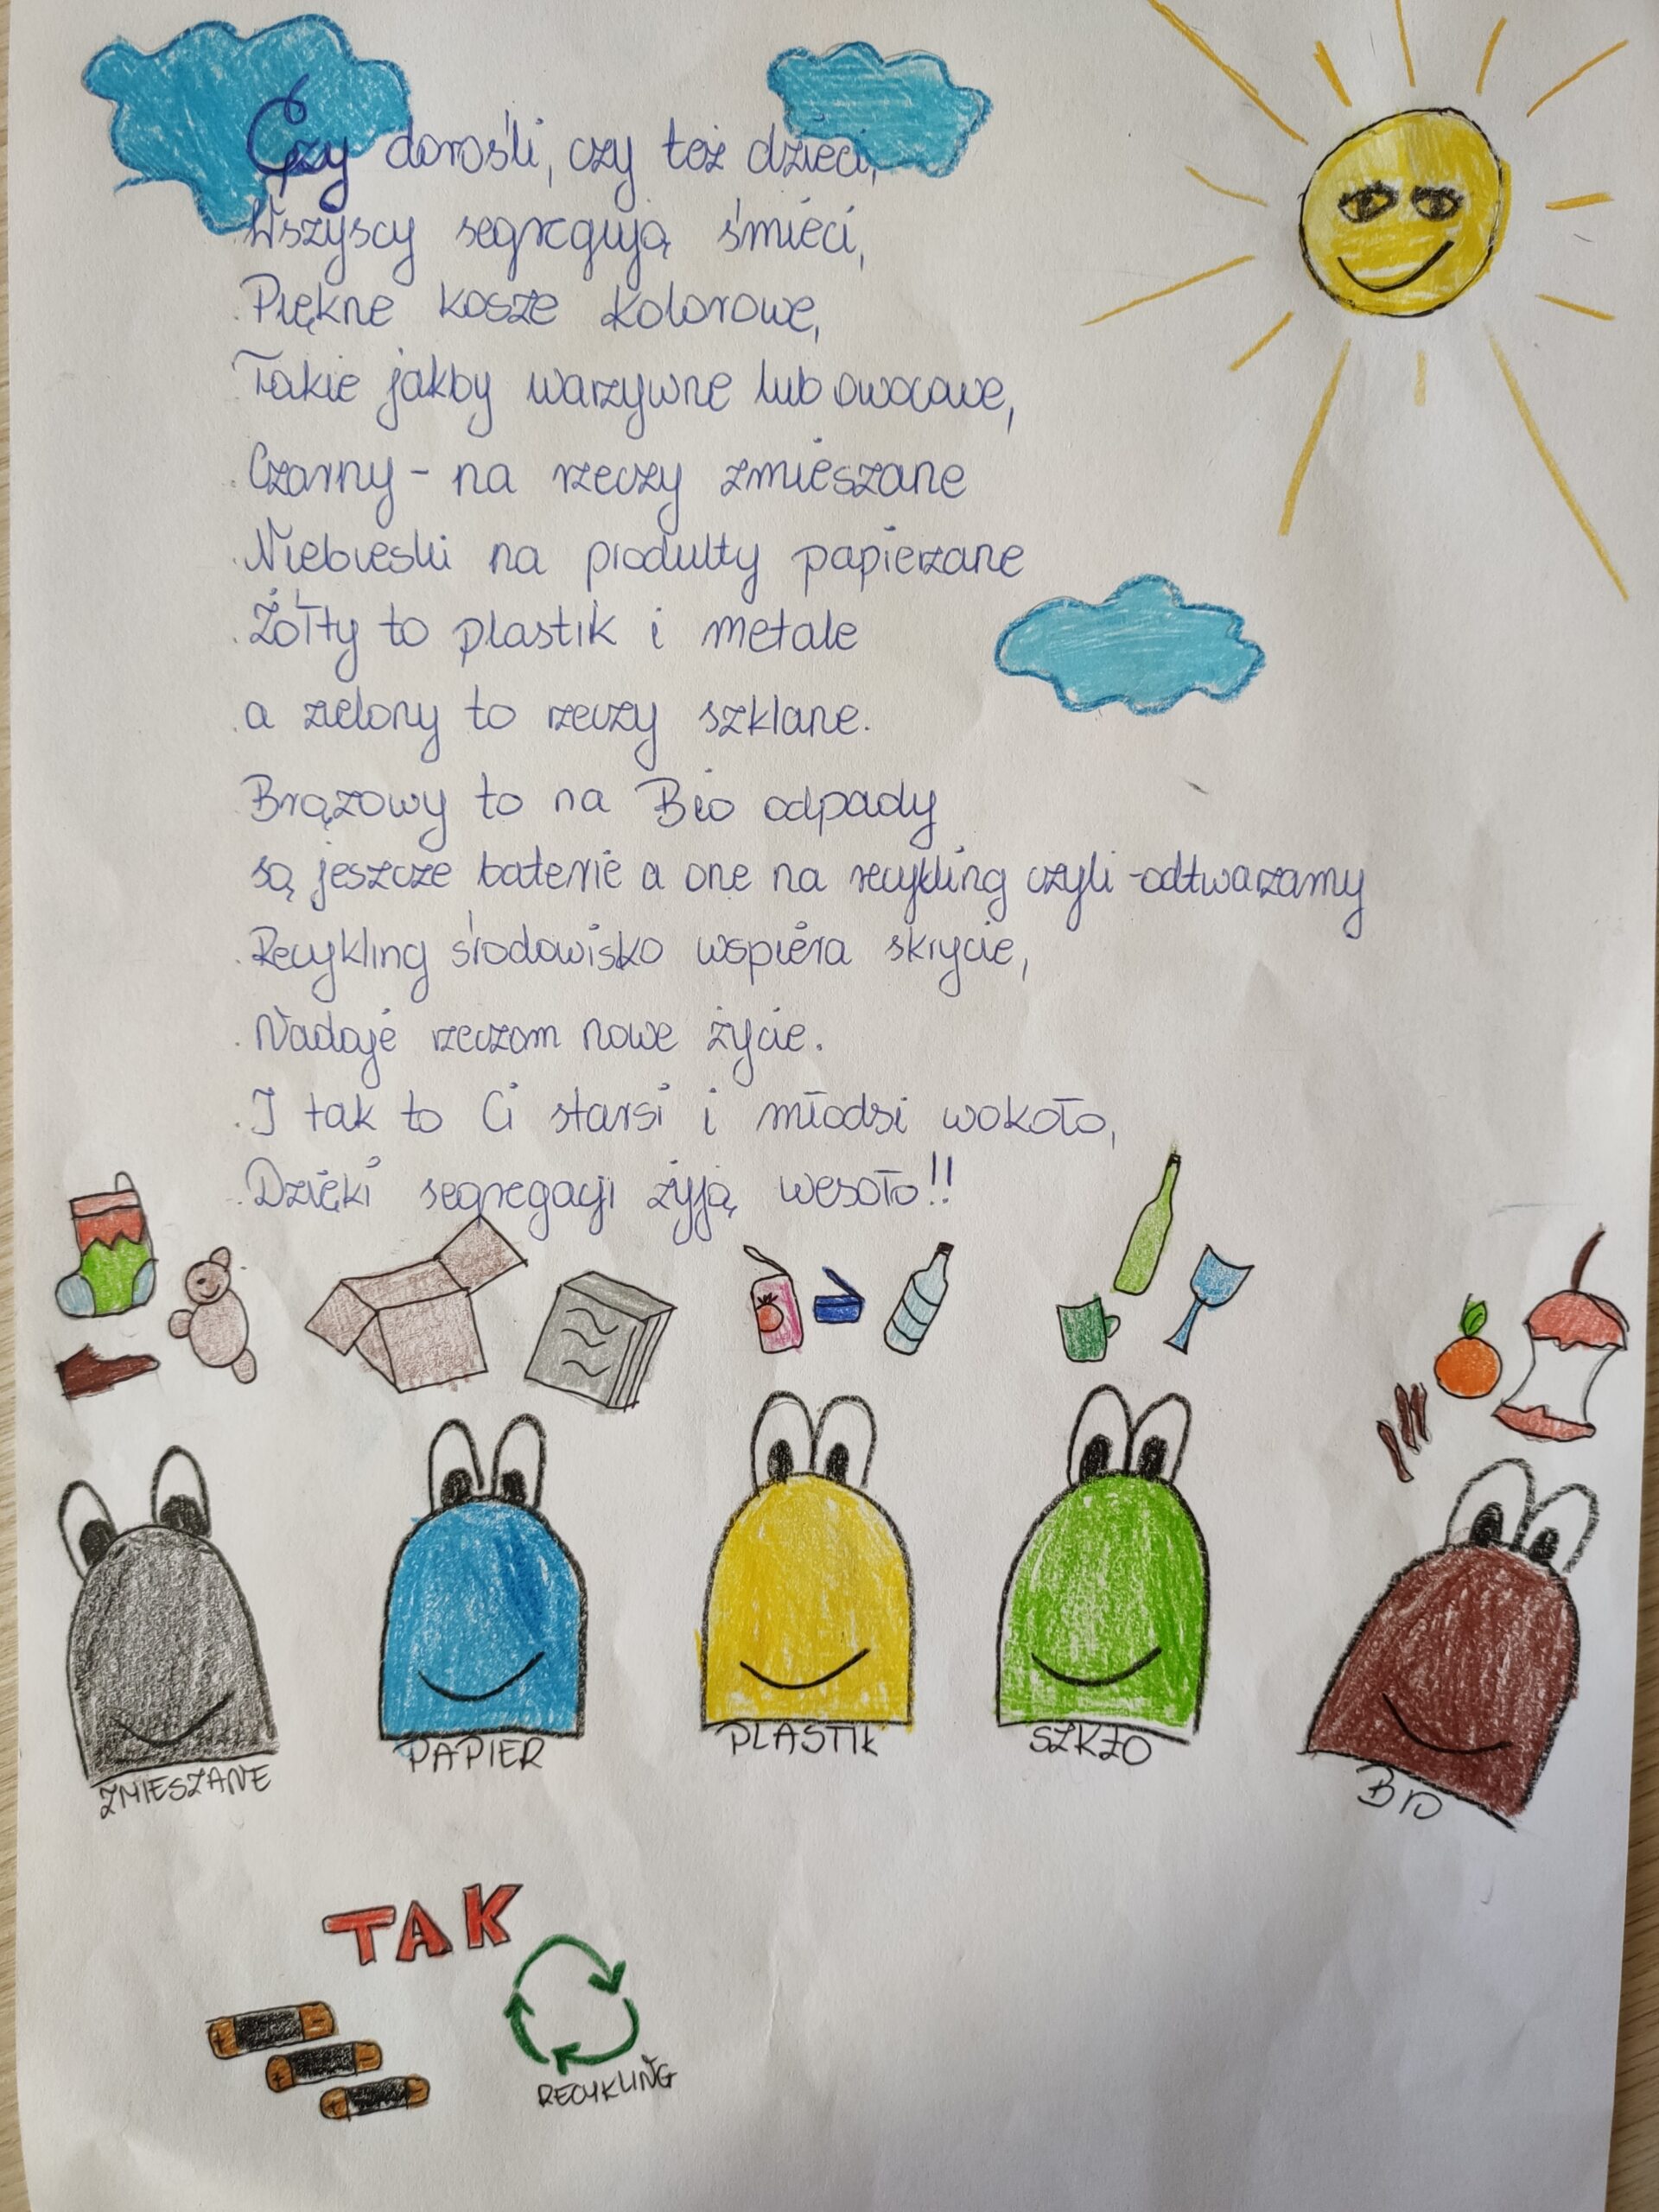 Czy dorośli, czy też dzieci,
Wszyscy segregują śmieci,
Piękne kosze kolorowe,
Takie jakby warzywne lub owocowe,
Czarny - na rzeczy zmieszane
Niebieski na produkty papierzane
Żółty to plastik i metale
a zielony to rzeczy szklane.
Brązowy to na Bio odpady
są jeszcze baterie a one na recykling czyli - odtwarzamy
Recykling środowisko wspiera skrycie,
Nadaje rzeczom nowe życie.
I tak to Ci starsi i młodsi wokoło,
Dzięki segregacji żyją wesoło!!
ZMIESZANE
PAPIER
PLASTIK
SZKŁO
BIO
TAK
RECYKLING